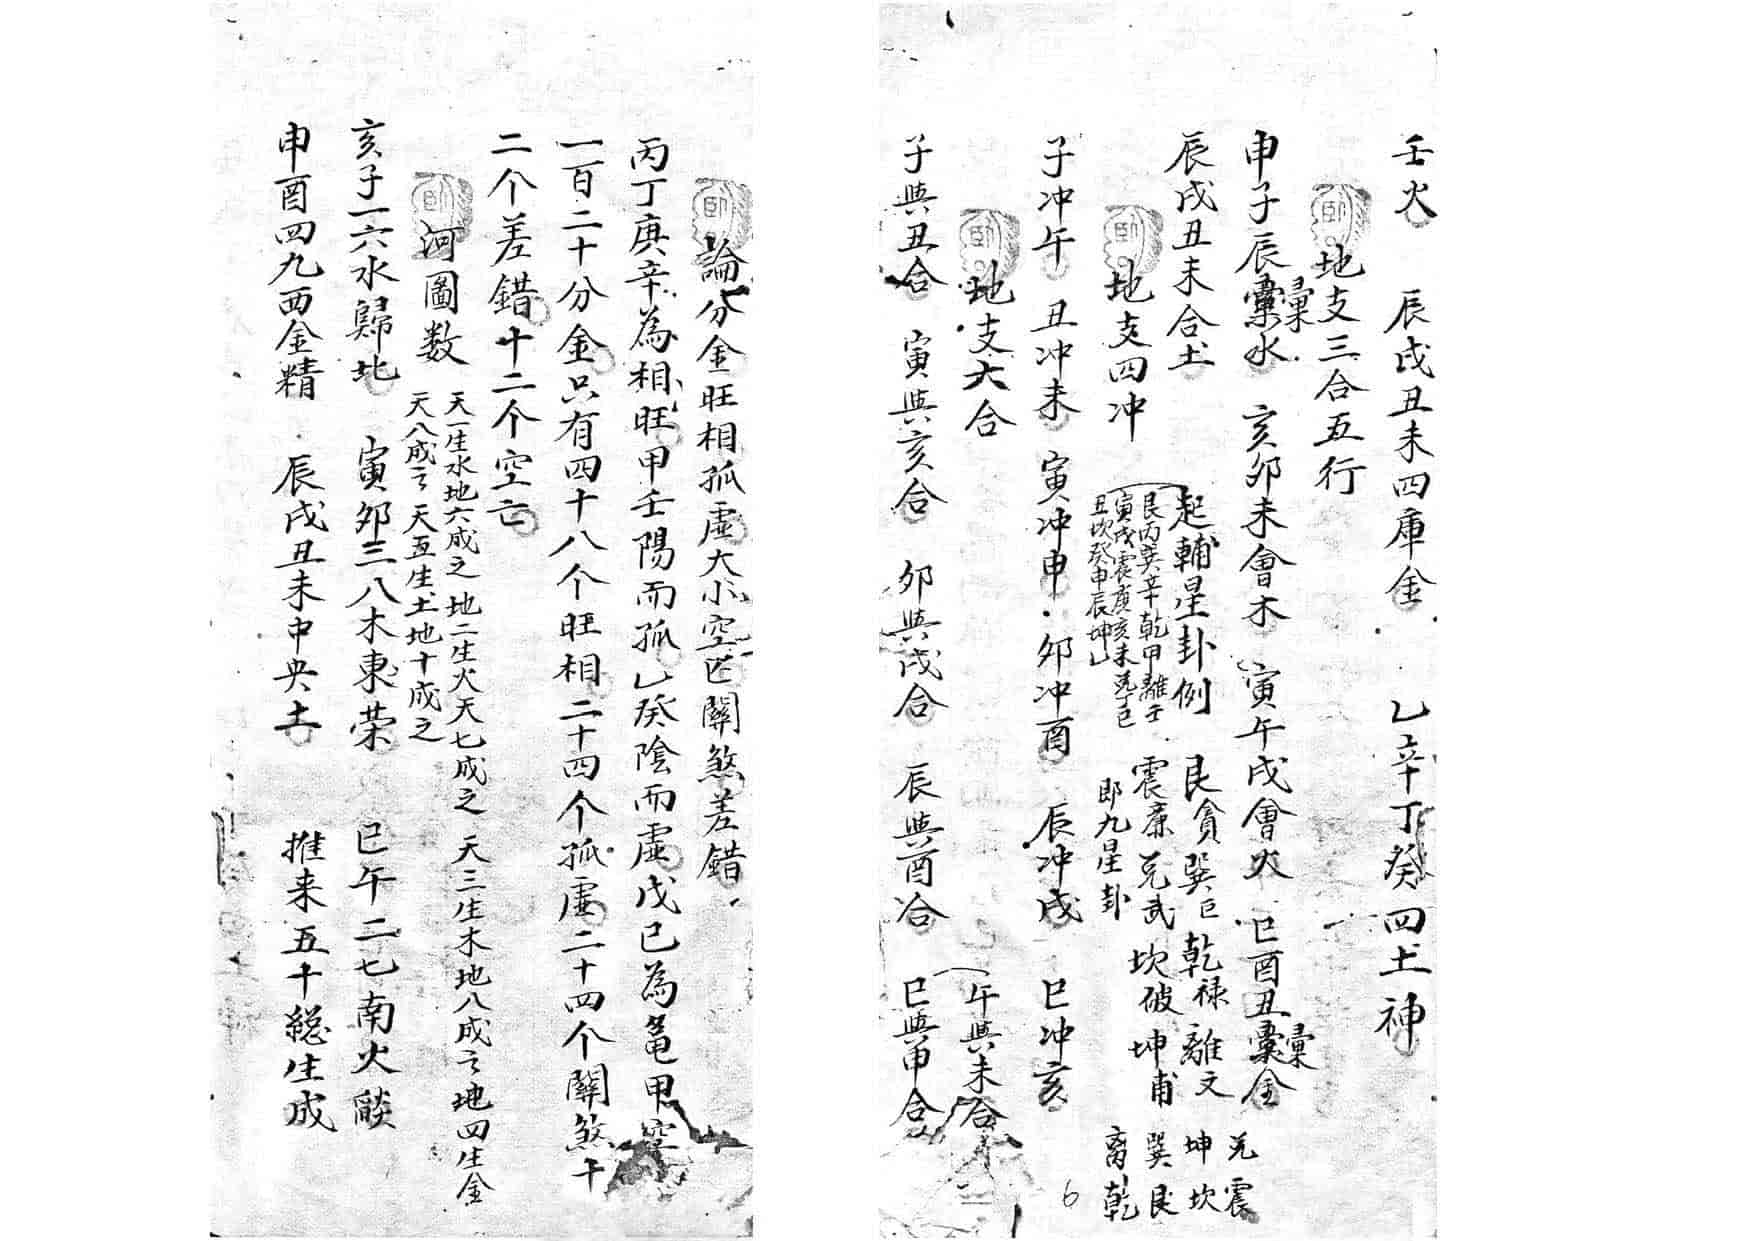 壬火 辰戌丑未四庫金 乙辛丁癸四土神
地支三合五行
申子辰彙水 亥卯未會木 寅午戌會火 巳酉丑彙金
彙
彙
辰戌丑未合土
起輔星卦例
艮貪巽巨乾禄離文
震廉兌武坎破坤甫
即九星卦
兌震
坤坎
巽艮
离乾
艮丙巽辛乾甲離壬
寅戌震庚亥未兌丁巳
丑坎癸申辰坤乙
地支四冲
子冲午 丑冲未 寅冲申 卯冲酉 辰冲戌 巳冲亥
6
地支大合
午與未合
子與丑合 寅與亥合 卯與戌合 辰與酉合 巳與申合
論分金旺相孤虛大小空亡關煞差錯
丙丁庚辛為相旺甲壬陽而孤乙癸陰而虛戊己為龜甲空
一百二十分金只有四十八个旺相二十四个孤虛二十四个關煞十
二个差錯十二个空亡
河圖数
天一生水地六成之 地二生火天七成之 天三生木地八成之地四生金
天八成之 天五生土地十成之
亥子一六水歸北 寅卯三八木東荣 巳午二七南火燄
申酉四九西金精 辰戌丑未中央土 推来五十總生成